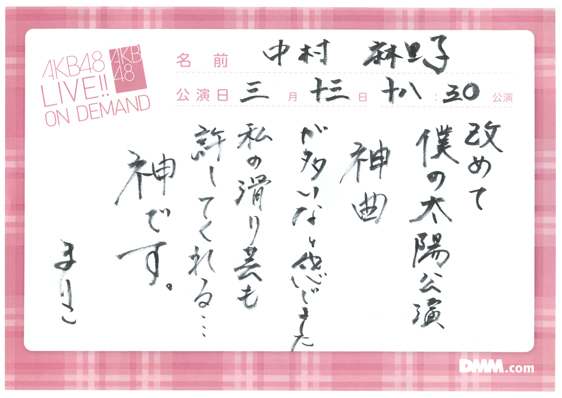 AKB48
LIVE!!
ON DEMAND
AKB
48
名前 中村 麻里子
公演日 三月十三日 十八:30公演
改めて
僕の太陽公演
神曲
が多いなと感じました
私の滑り芸も
許してくれる…
神です。
まりこ
DMM.com